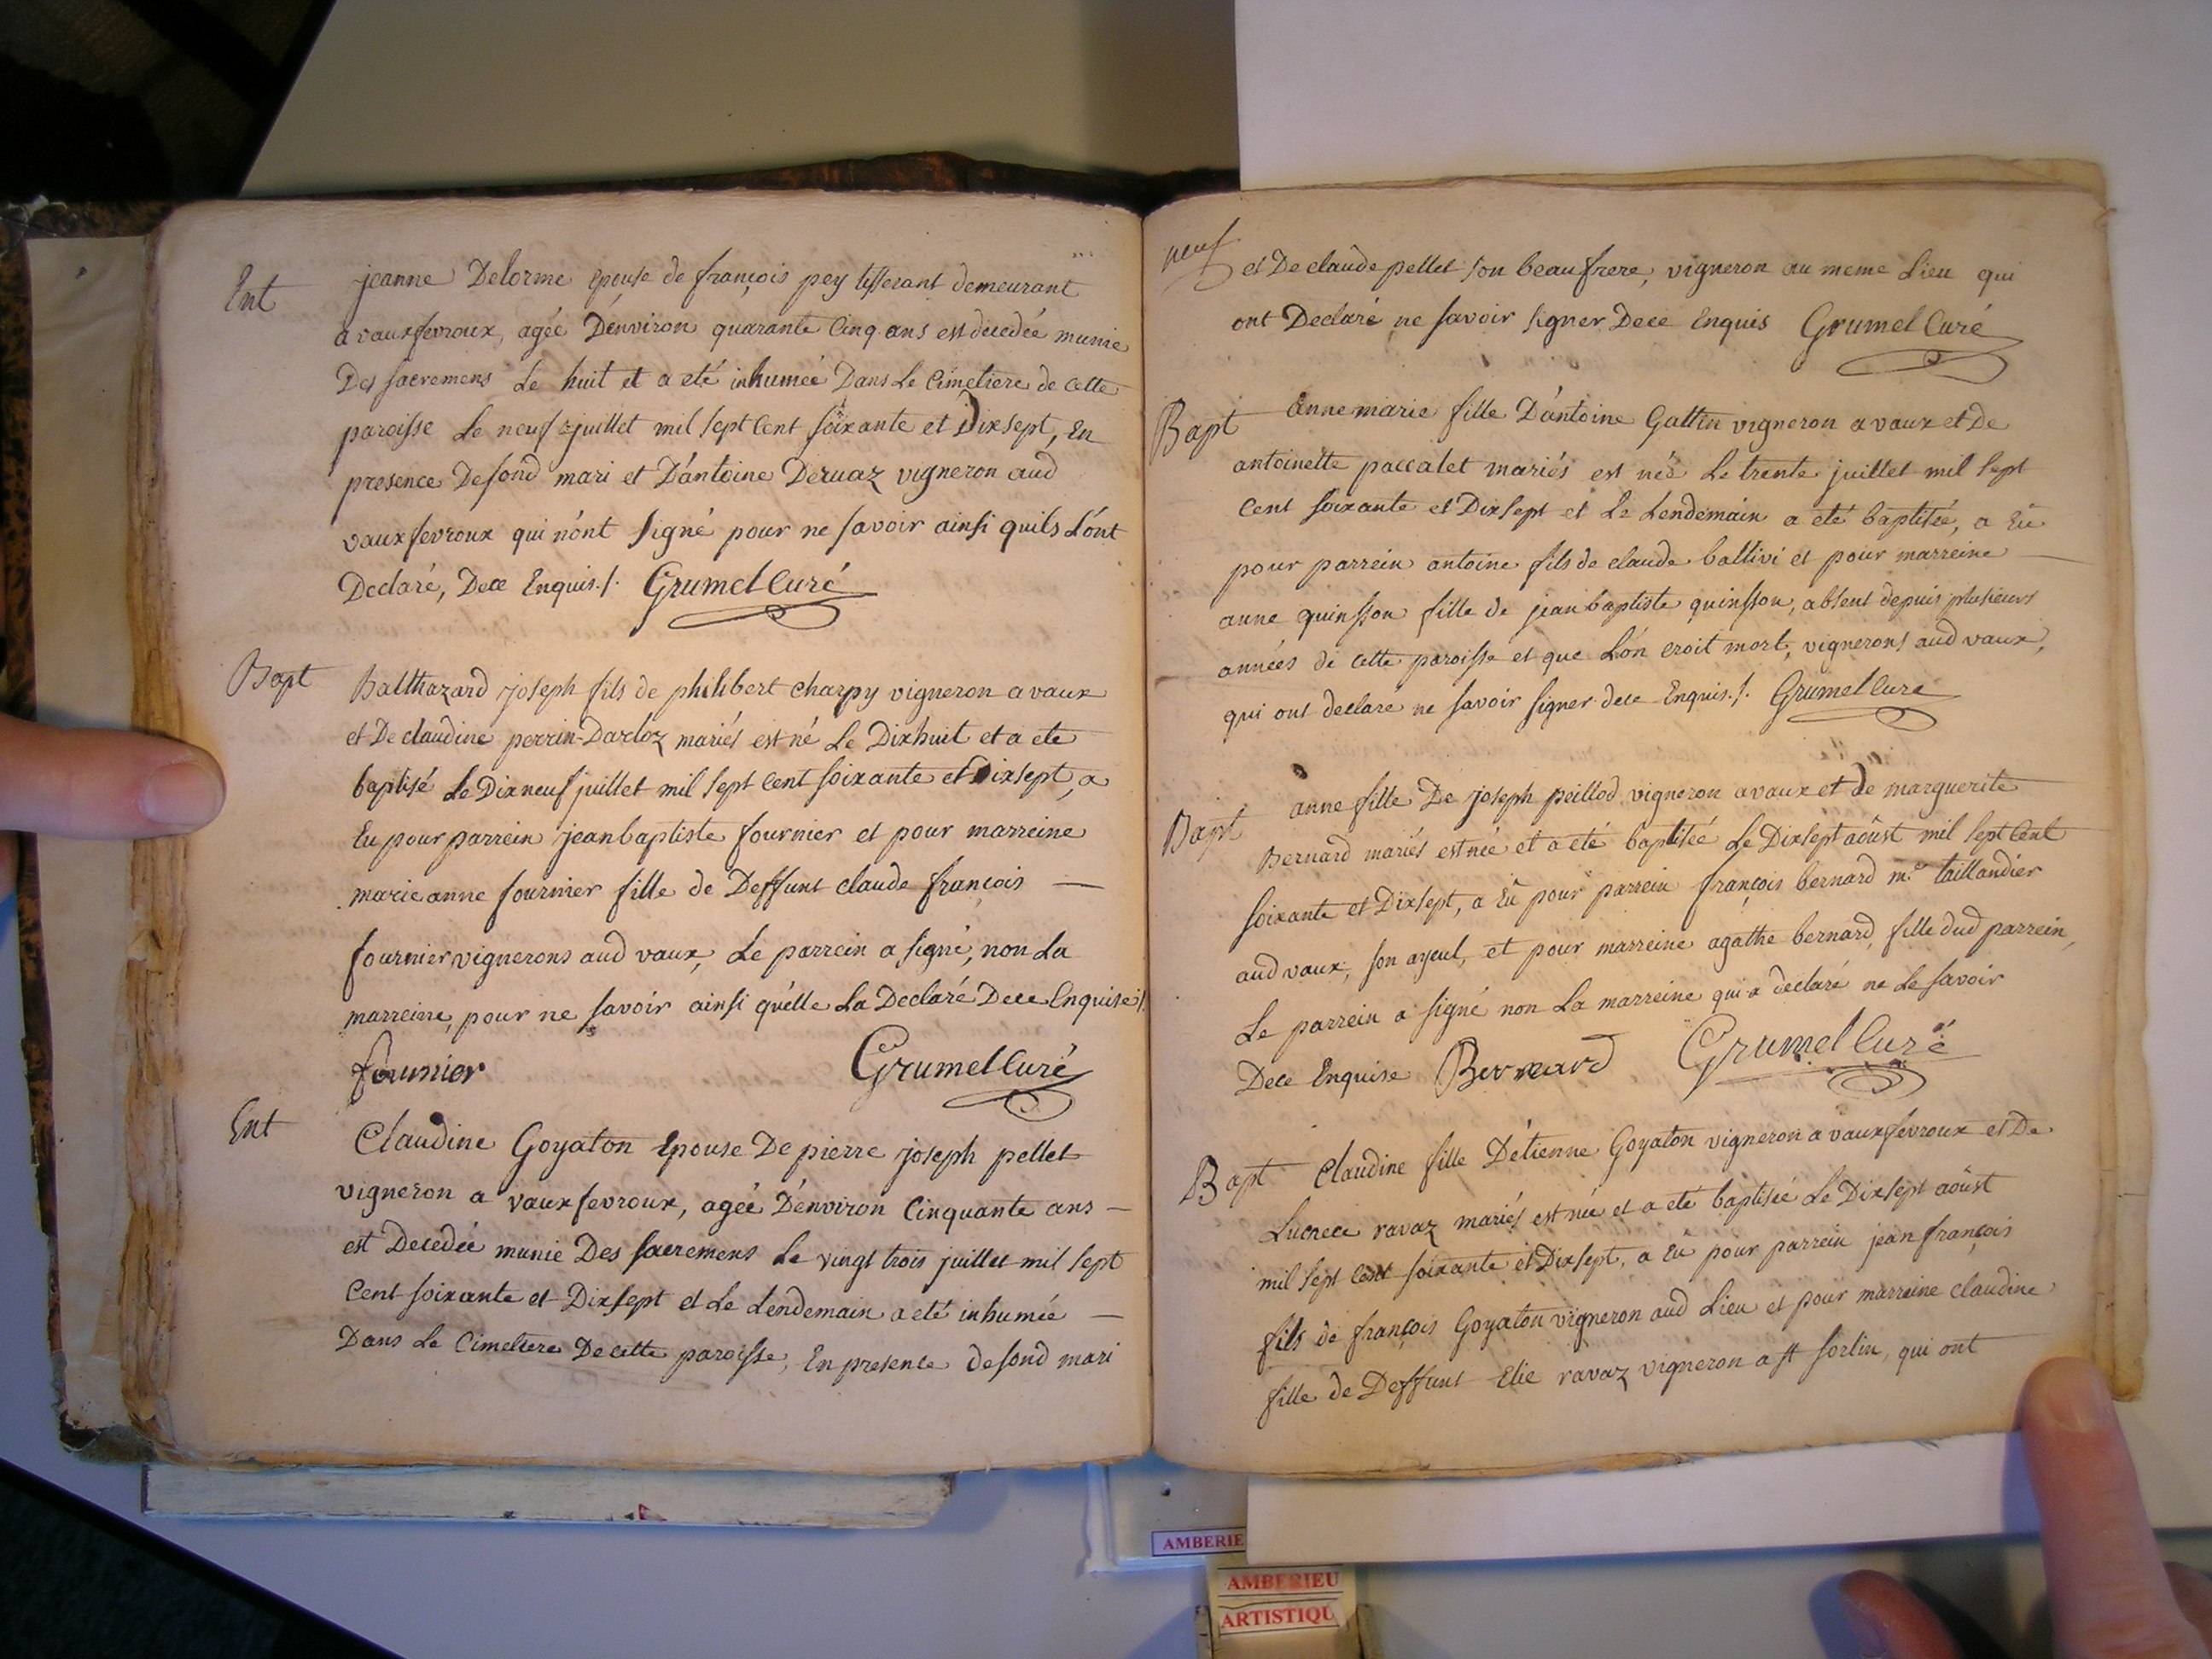 Ent
jeanne Delorme Epouse de françois pey tisserant demeurant
a vauxfevroux, agée D'environ quarante Cinq ans est decedée munie
Des sacremens Le huit et a eté inhumée Dans Le Cimetiere de cette
paroisse Le neuf juillet mil sept Cent soixante et Dixsept, En
presence De sond mari et D'antoine Deruaz vigneron aud
vauxfevroux qui n'ont signé pour ne savoir ainsi quils L'ont
Declaré, Dece Enquis./. Grumel Curé
Bapt
Balthazard joseph fils de philibert charpy vigneron a vaux
et De claudine perrin-Darloz mariés est né Le Dixhuit et a ete
baptisé Le Dixneuf juillet mil sept Cent soixante et Dixsept, a
Eu pour parrein jeanbaptiste fournier et pour marreine
marie anne fournier fille de Deffunt claude françois —
fournier vignerons aud vaux, Le parrein a signé, non La
marreine, pour ne savoir ainsi qu'elle La Declaré Dece Enquise./.
fournier Grumel Curé
Ent
Claudine Goyaton Epouse De pierre joseph pellet
vigneron a vauxfevroux, agée D'environ Cinquante ans —
est Decedée munie Des sacremens Le vingt trois juillet mil sept
Cent soixante et Dixsept et Le Lendemain a eté inhumée —
Dans Le Cimetiere De cette paroisse, En presence de sond mari
neuf
et De claude pellet son beaufrere, vigneron au meme Lieu qui
ont Declaré ne savoir signer Dece Enquis Grumel Curé
Bapt
anne marie fille D'antoine Gattin vigneron a vaux et De
antoinette paccalet mariés est née Le trente juillet mil sept
Cent soixante et Dixsept et Le Lendemain a eté baptisée, a Eû
pour parrein antoine fils de claude ballivi et pour marreine —
anne quinsson fille de jean baptiste quinsson, absent depuis plusieurs
années de cette paroisse et que L'on croit mort, vignerons aud vaux,
qui ont declaré ne savoir signer dece Enquis./. Grumel Curé
Bapt
anne fille De joseph peillod vigneron a vaux et de marguerite
Bernard mariés est née et a eté baptisée Le Dixsept aoûst mil sept Cent
soixante et Dixsept, a Eû pour parrein françois bernard m.e taillandier
aud vaux, son ayeul, et pour marreine agathe bernard, fille dud parrein,
Le parrein a signé non La marreine qui a declaré ne Le savoir
Dece Enquise Bernard Grumel Curé
Bapt
Claudine fille D'etienne Goyaton vigneron a vauxfevroux et De
Lucrece ravaz mariés est née et a eté baptisée Le Dixsept aoûst
mil sept Cent soixante et Dixsept, a Eû pour parrein jean françois
fils de françois Goyaton vigneron aud Lieu et pour marreine claudine
fille de Deffunt Elie ravaz vigneron a st sorlin, qui ont
AMBERIE
AMBERIEU
ARTISTIQU